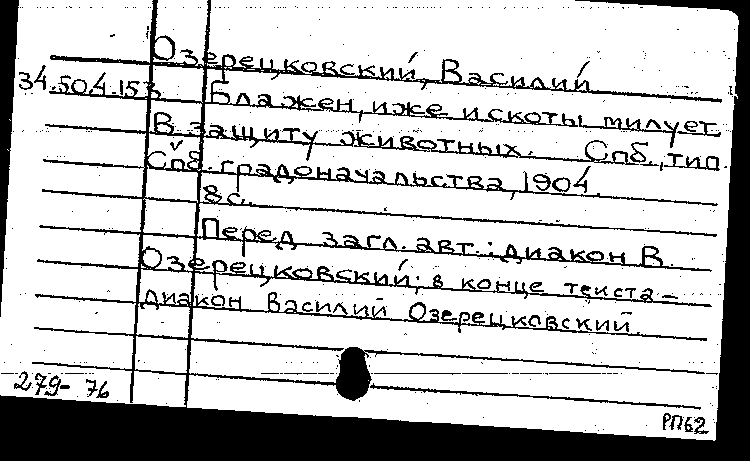 Озерецковский, Василий
34.504.153 Блажен, иже и скоты милует.
В защиту животных. Спб., тип.
Спб. градоначальства, 1904.
8 с.
Перед загл. авт.: диакон В.
Озерецковский; в конце текста -
диакон Василий Озерецковский.
279-76
РП62